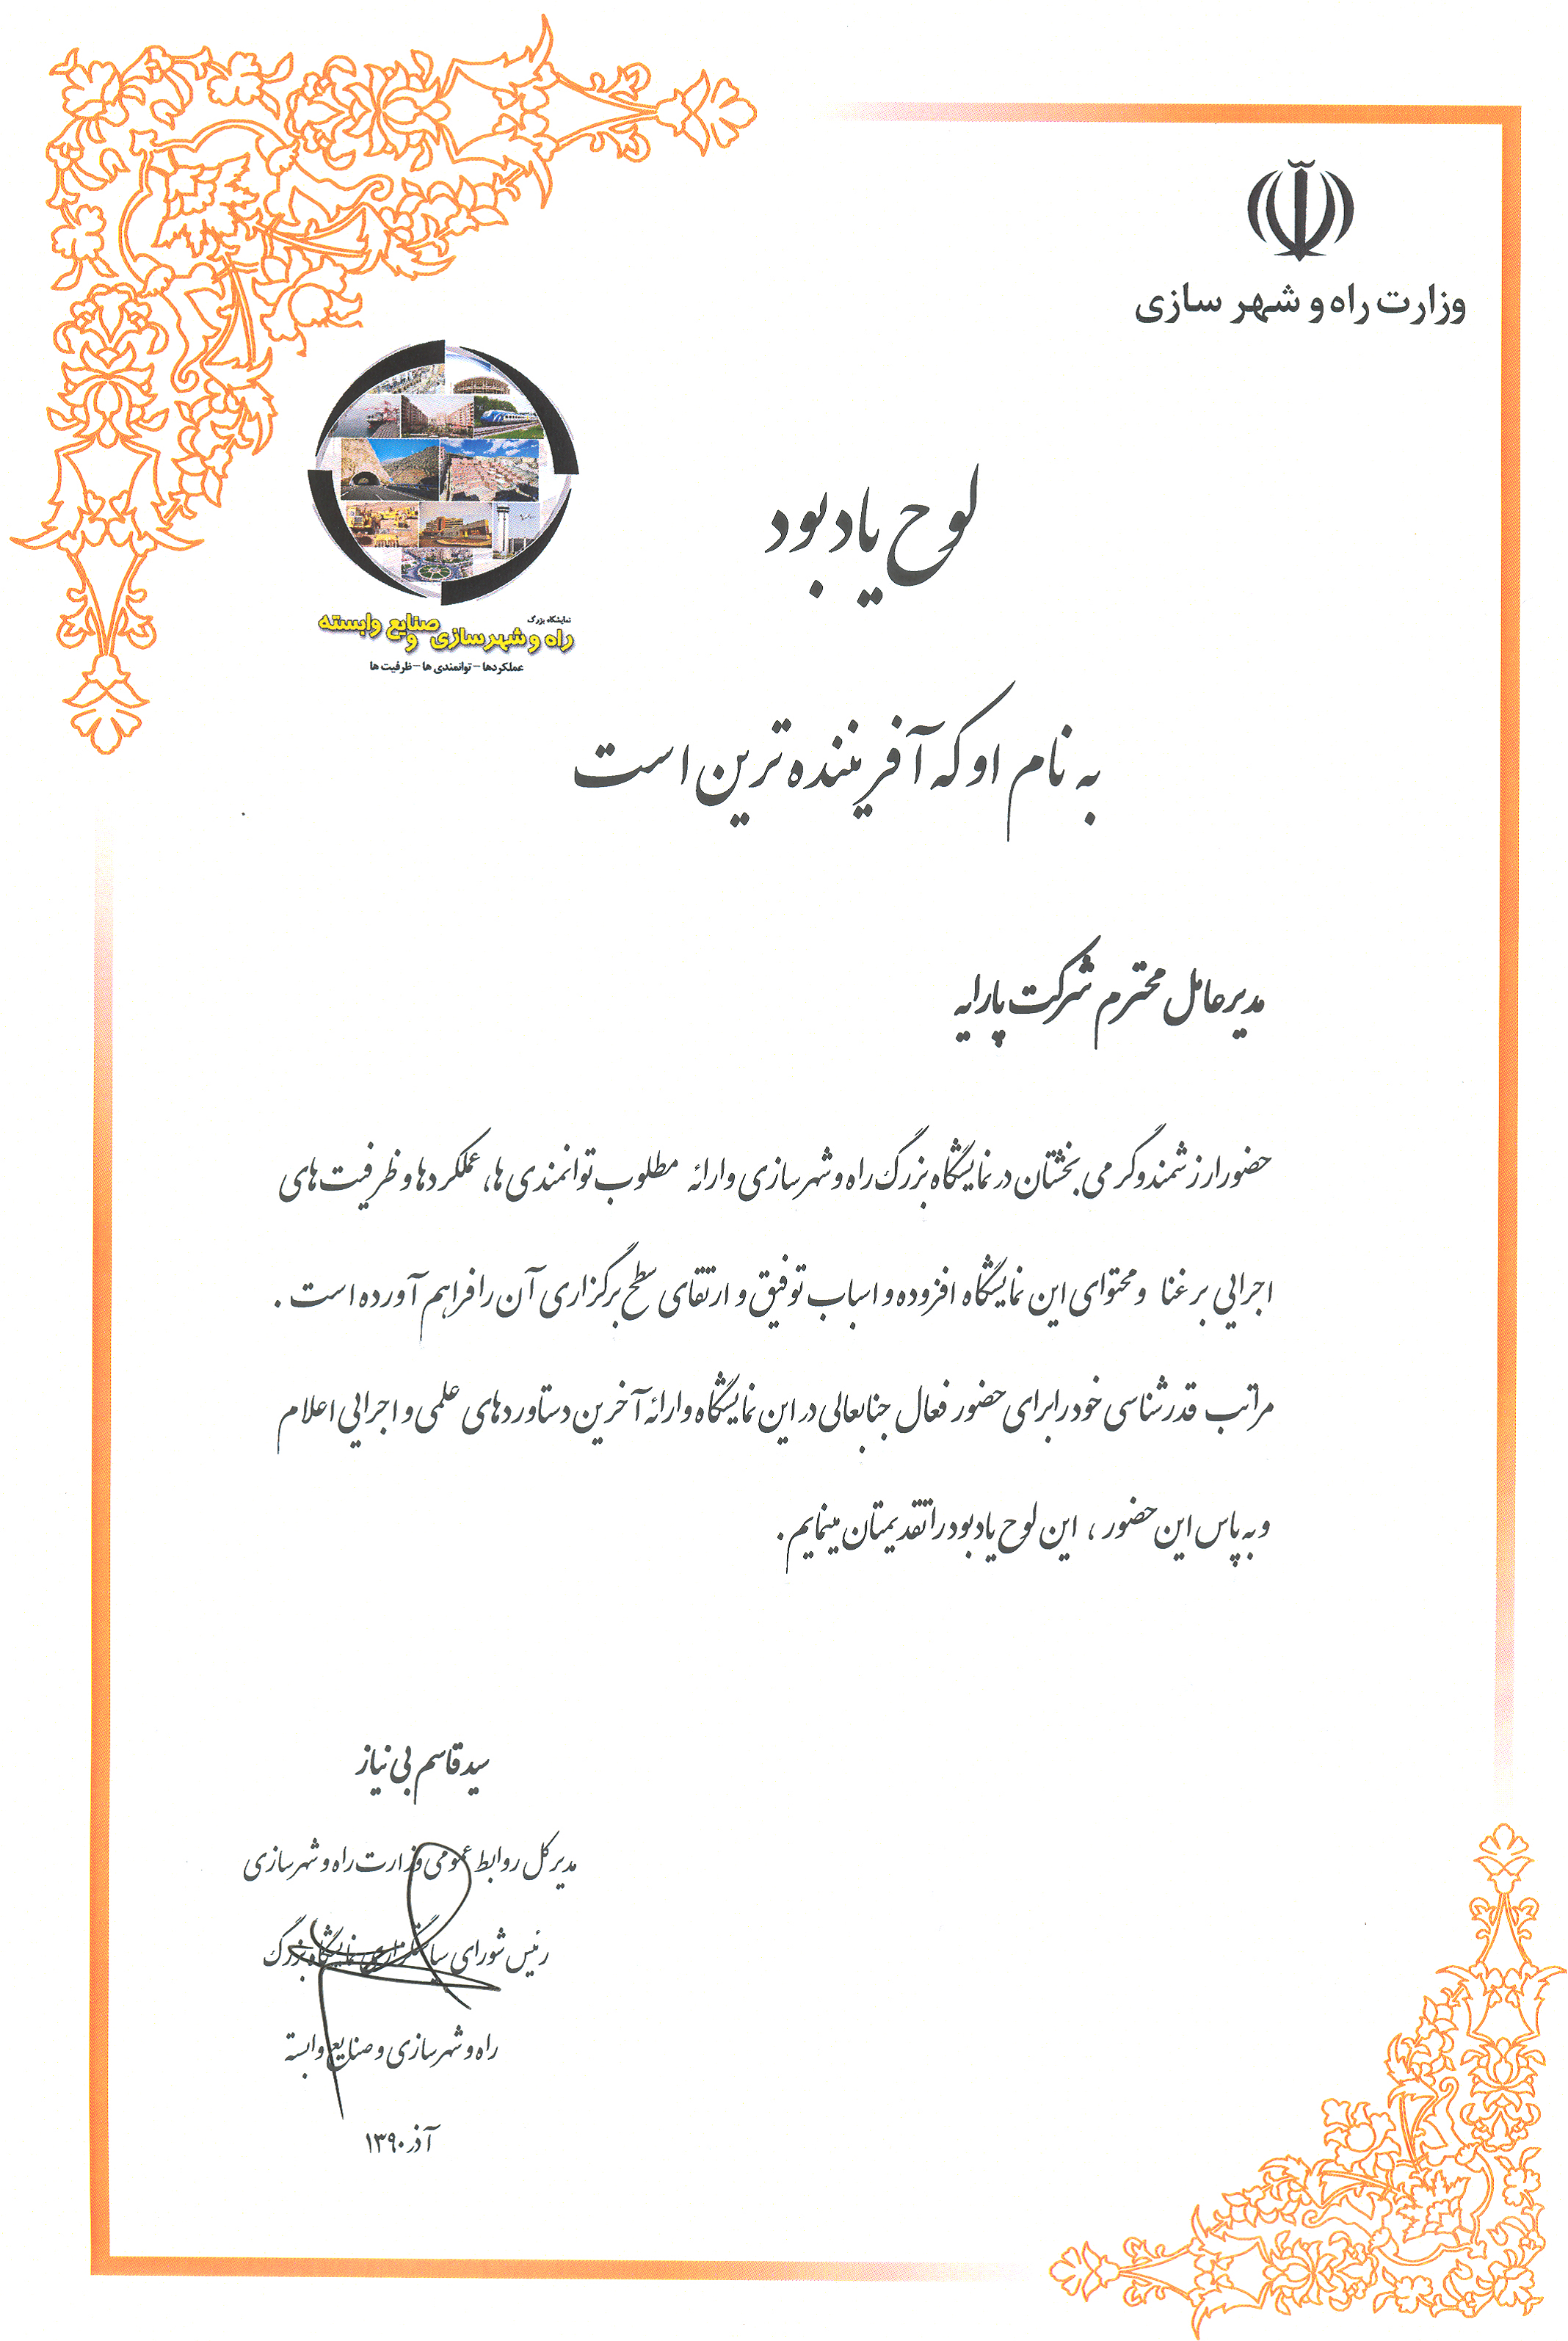 وزارت راه و شهر سازی
نمایشگاه بزرگ
راه و شهرسازی و صنایع وابسته
عملکردها - توانمندی ها - ظرفیت ها
لوح یادبود
به نام او که آفریننده ترین است
مدیرعامل محترم شرکت پارایه
حضور ارزشمند و گرمی بخشتان در نمایشگاه بزرگ راه و شهرسازی و ارائه مطلوب توانمندی ها، عملکردها و ظرفیت های
اجرایی بر غنا و محتوای این نمایشگاه افزوده و اسباب توفیق و ارتقای سطح برگزاری آن را فراهم آورده است .
مراتب قدرشناسی خود را برای حضور فعال جنابعالی در این نمایشگاه و ارائه آخرین دستاوردهای علمی و اجرایی اعلام
و به پاس این حضور ، این لوح یادبود را تقدیمتان مینمایم .
سید قاسم بی نیاز
مدیر کل روابط عمومی وزارت راه و شهرسازی
رئیس شورای سیاستگزاری نمایشگاه بزرگ
راه و شهرسازی و صنایع وابسته
آذر ۱۳۹۰